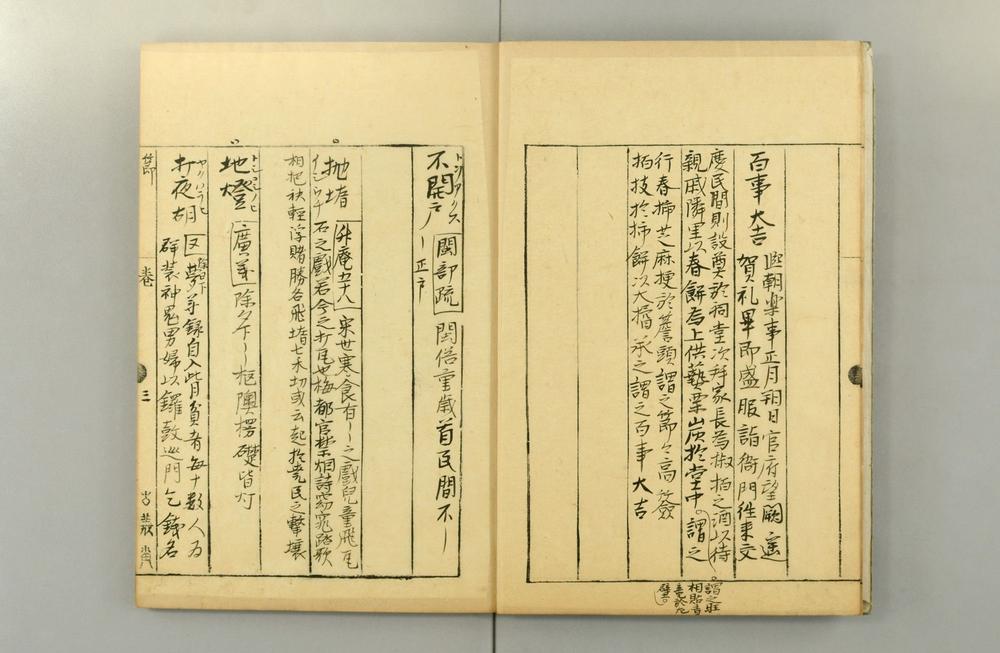 百事大吉
熙朝樂事正月朔日官府望闕遙
賀礼畢即盛服詣衙門往来交
慶民間則設奠於祠堂次拜家長為椒柏之酒以待
親戚隣里以春餅為上供爇栗炭於堂中。謂之
行春插芝麻梗於簷頭謂之節々高簽
柏枝於柿餅以大橘承之謂之百事大吉
謂之旺
相貼青
龍於左
壁。
不開戸
閩部疏
閩俗重歳首民間不ー
ー正戸
抛堶
升庵
宋世寒食有ー之戯兒童飛瓦
石之戯若今之打瓦也梅都官禁烟詩窈窕踏歌
相把袂輕浮賭勝各飛堶七禾切或云起於堯民之撃壤
地燈
廣義
除夕ー柜隩楞礎皆灯
打夜胡
又
夢華録自入此月貧者每十数人为
群装神鬼男婦以鑼鼓巡門乞錢名
節
卷
三